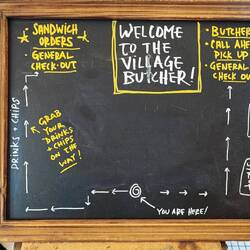 SANDWICH
ORDERS
• GENERAL
CHECK-OUT
WELCOME
TO THE
VILLAGE
BUTCHER!
• BUTCHER
• CALL AHE
PICK UP
• GENERAL
CHECK OU
DRINKS + CHIPS
GRAB
YOUR
DRINKS
+ CHIPS
ON THE
WAY!
YOU ARE HERE!